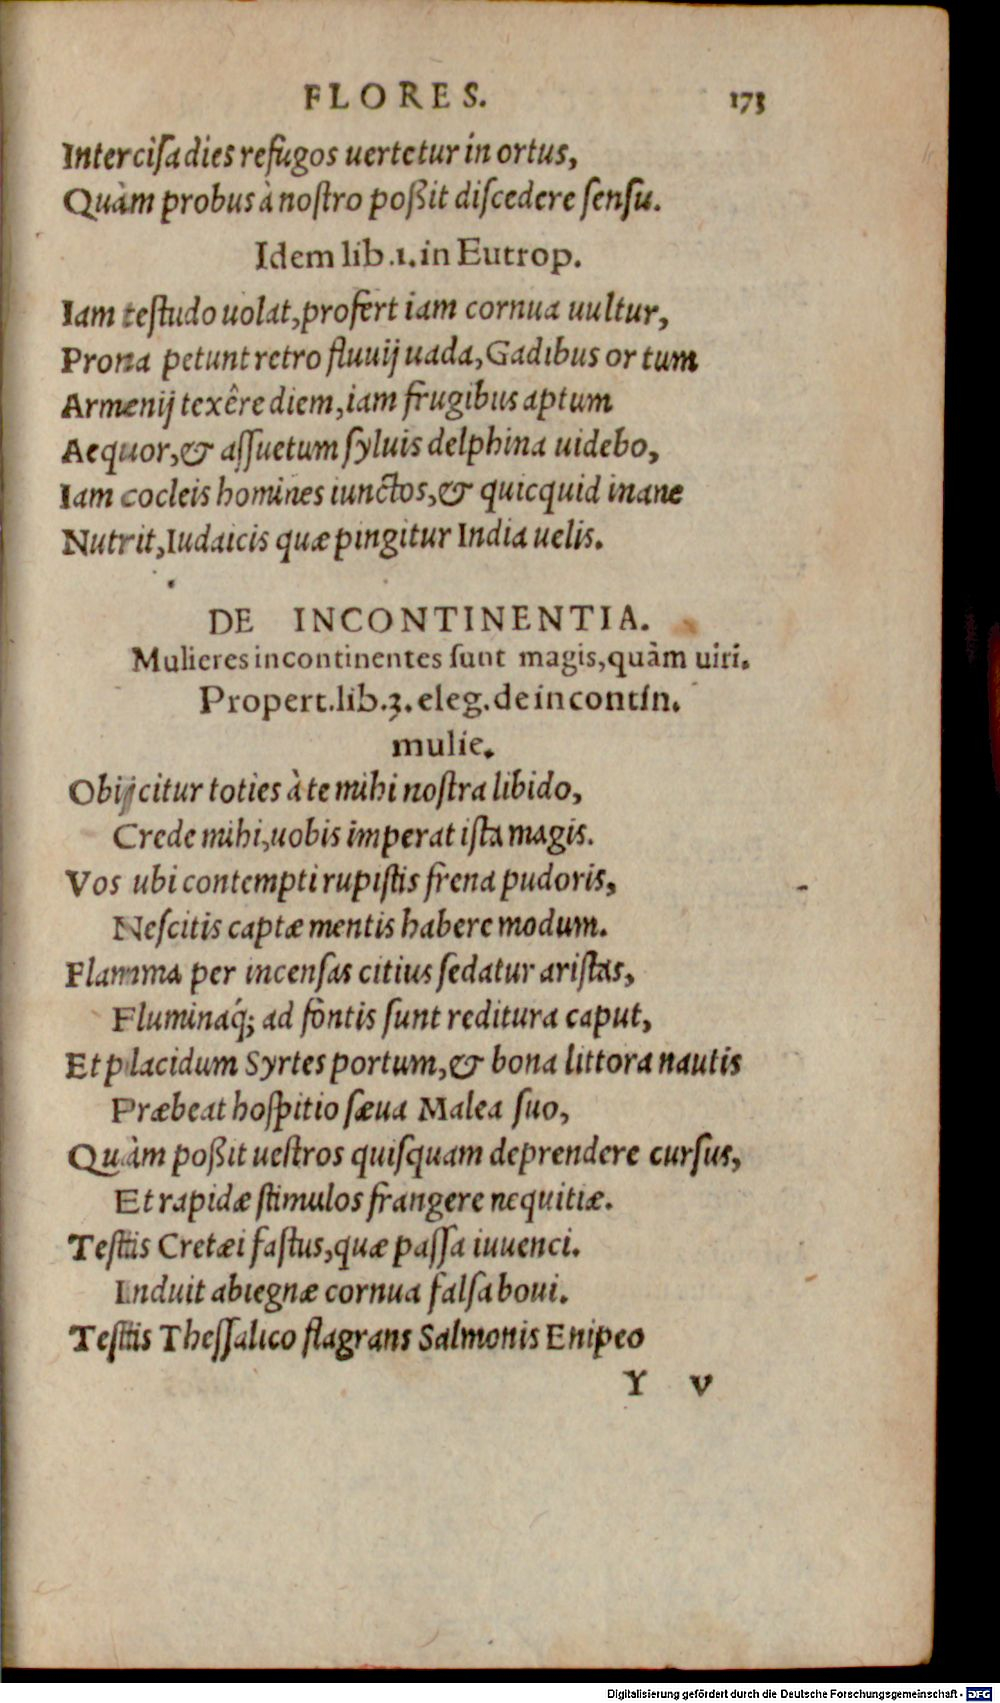 FLORES. 173
Intercisa dies refugos uertetur in ortus,
Quàm probus à nostro poßit discedere sensu.
Idem lib.1. in Eutrop.
Iam testudo uolat, profert iam cornua uultur,
Prona petunt retro fluuij uada, Gadibus ortum
Armenij texêre diem, iam frugibus aptum
Aequor, & assuetum syluis delphina uidebo,
Iam cocleis homines iunctos, & quicquid inane
Nutrit, Iudaicis quæ pingitur India uelis.
DE INCONTINENTIA.
Mulieres incontinentes sunt magis, quàm uiri.
Propert. lib.3. eleg. de incontin.
mulie.
Obijcitur toties à te mihi nostra libido,
Crede mihi, uobis imperat ista magis.
Vos ubi contempti rupistis frena pudoris,
Nescitis captæ mentis habere modum.
Flamma per incensas citius sedatur aristas,
Fluminaq́; ad fontis sunt reditura caput,
Et placidum Syrtes portum, & bona littora nautis
Præbeat hospitio sæua Malea suo,
Quàm poßit uestros quisquam deprendere cursus,
Et rapidæ stimulos frangere nequitiæ.
Testis Cretæi fastus, quæ passa iuuenci.
Induit abiegnæ cornua falsa boui.
Testis Thessalico flagrans Salmonis Enipeo
Y v
Digitalisierung gefördert durch die Deutsche Forschungsgemeinschaft - DFG